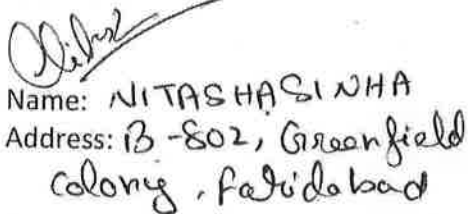 Name: NITASHA SINHA
Address: B-802, Greenfield
Colony, Faridabad